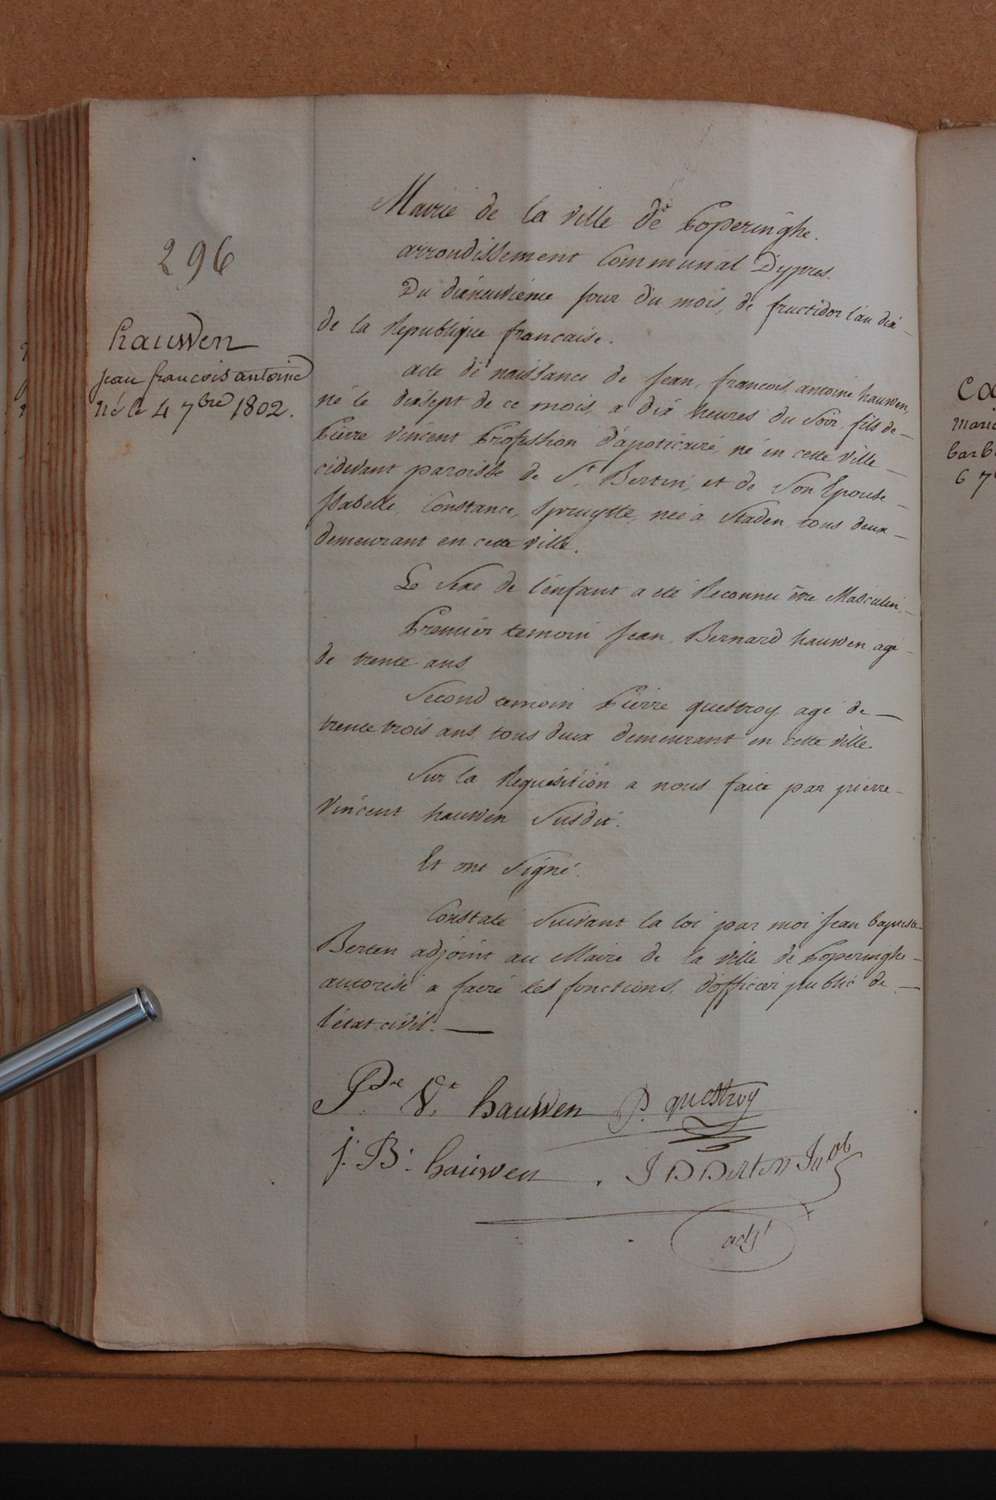 296
hauwen
jean francois antoine
né le 4 7bre 1802.
Mairie de la ville de Poperinghe.
arrondissement Communal D'ypres.
Du dixneuvieme jour du mois de fructidor l'an dix
de la Republique francaise.
acte de naissance de Jean francois antoine hauwen,
né le dixsept de ce mois a dix heures du Soir, fils de
Pierre Vincent Profession d'apoticaire, né en cette ville
cidevant paroisse de St. Bertin, et de Son Epouse
Isabelle Constance Spruytte, née a Staden tous deux
demeurant en cette ville.
Le Sexe de l'enfant a eté Reconnu être Masculin,
Premier temoin Jean Bernard hauwen agé
de trente ans
Second temoin Pierre questroy agé de
trente trois ans tous deux demeurant en cette ville.
Sur la Requisition a nous faite par pierre
Vincent hauwen Susdit.
Et ont Signé.
Constaté Suivant la loi par moi Jean baptiste
Berten adjoint au Maire de la ville de Poperinghe
autorisé a faire les fonctions d'officier public de
l'etat civil.
Pre. Vt. hauwen P. questroy
j: B: hauwen J B Berten
adjt
Ca
marie
barb
6 7